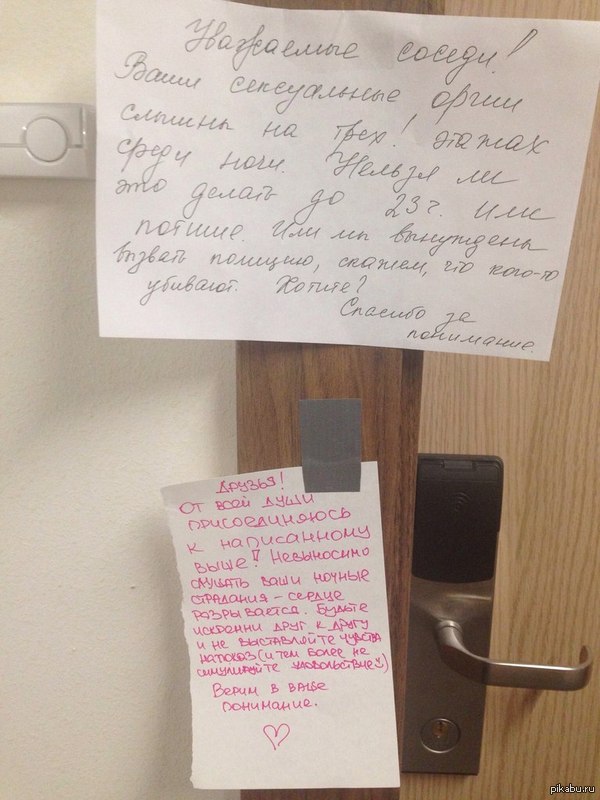 Уважаемые соседи!
Ваши сексуальные оргии
слышны на трех! этажах
среди ночи. Нельзя ли
это делать до 23 ч. или
потише. Или мы вынуждены
вызвать полицию, скажем, что кого-то
убивают. Хотите?
Спасибо за
понимание.
ДРУЗЬЯ!
ОТ ВСЕЙ ДУШИ
ПРИСОЕДИНЯЮСЬ
К НАПИСАННОМУ
ВЫШЕ! НЕВЫНОСИМО
СЛУШАТЬ ВАШИ НОЧНЫЕ
СТРАДАНИЯ - СЕРДЦЕ
РАЗРЫВАЕТСЯ. БУДЬТЕ
ИСКРЕННИ ДРУГ К ДРУГУ
И НЕ ВЫСТАВЛЯЙТЕ ЧУВСТВА
НАПОКАЗ (И ТЕМ БОЛЕЕ НЕ
СИМУЛИРУЙТЕ УДОВОЛЬСТВИЕ!)
ВЕРИМ В ВАШЕ
ПОНИМАНИЕ.
pikabu.ru